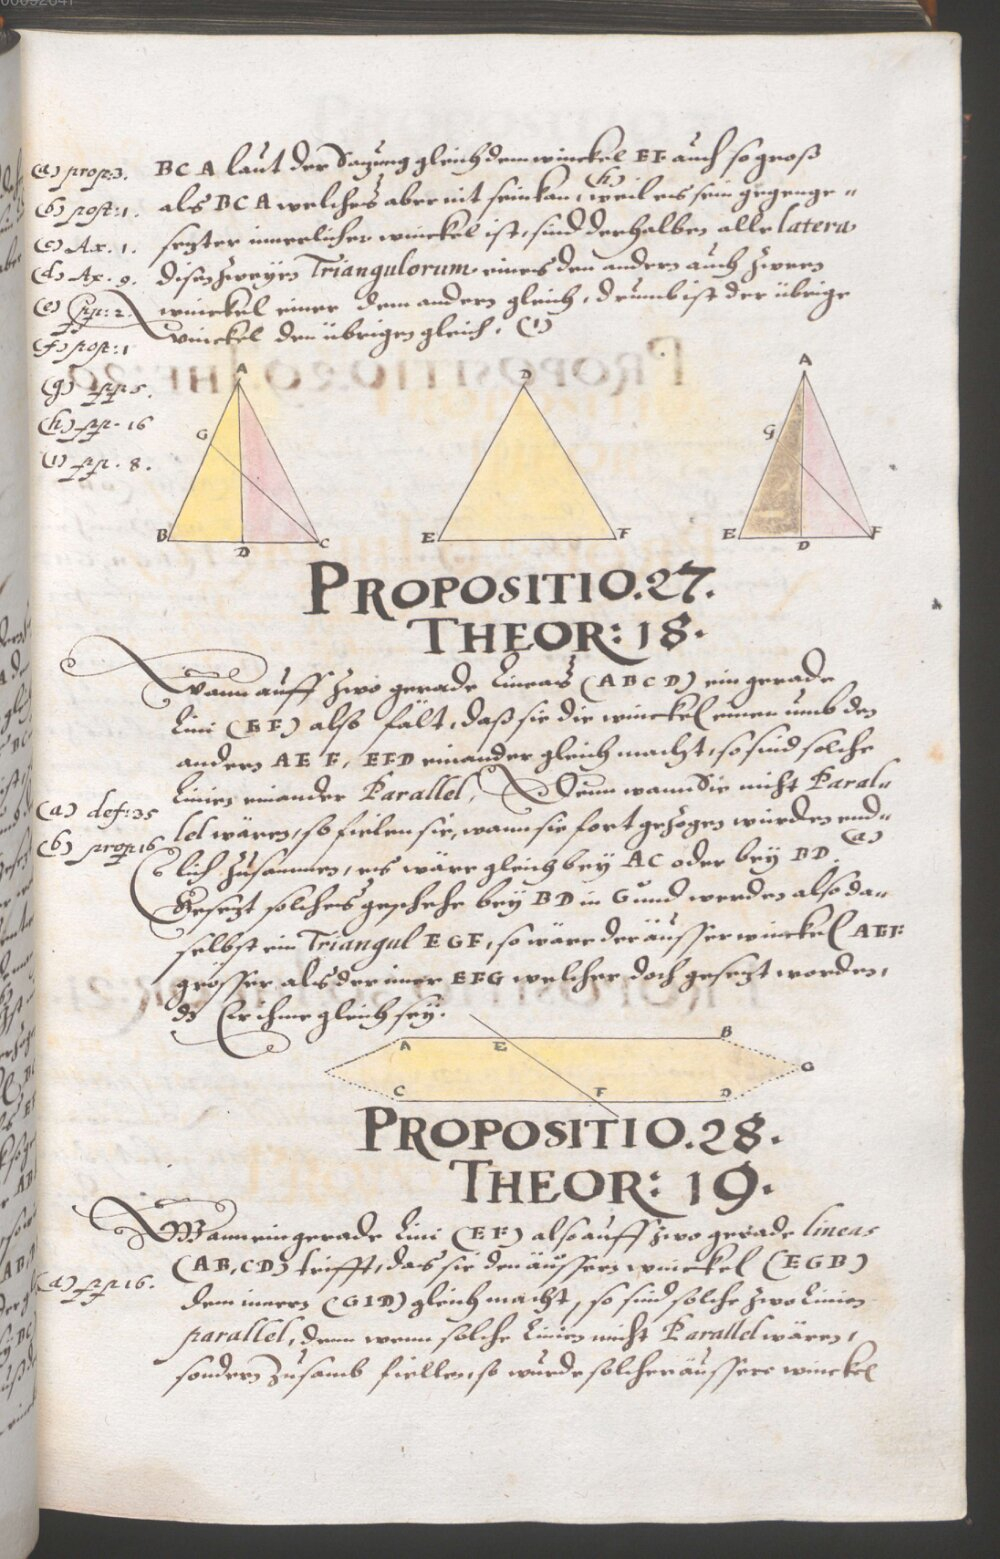 (a) prop:3.
(b) post:1.
(c) Ax. 1.
(d) Ax. 9.
(f) prop:1
(g) pp 5.
(h) pp. 16
(i) pp. 8.
BCA laut der Sazung gleich dem winckel EF auch so groß
(h)
als BCA welches aber nit sein kan, weil es sein gegenge-
sezter innerlicher winckel ist, sind derhalben alle latera
disen zweyen Triangulorum eines den andern auch zween
winckel einer dem andern gleich, drumb ist der übrige
winckel den übrigen gleich. (i)
A
G
B
D
C
D
E
F
A
G
E
D
F
PROPOSITIO.27.
THEOR: 18.
Wann auff zwo gerade Lineas (ABCD) ein gerade
Lini (EF) also fält, daß sie die winckel einen umb den
andern AEF, EFD einander gleich macht, so sind solche
Linien einander Parallel. Denn wann Sie nicht Paral-
(a) def:35
(b) prop:16
lel wären, so fielen sie, wann sie fort gezogen würden end-
(a)
lich zusammen, es wäre gleich bey AC oder bey BD.
Gesezt solches geschehe bey BD in G und werden also da-
selbst ein Triangul EGF, so wäre der äusser winckel AEF
grösser als der inner EFG welcher doch gesezt worden,
dz Er ihme gleich sey.
A E B
G
C F D
PROPOSITIO.28.
THEOR: 19.
Wann ein gerade Lini (EF) also auff zwo gerade lineas
(AB, CD) trifft, das sie den äussern winckel (EGB)
(a) pp 16.
dem innern (GID) gleich macht, so sind solche zwo Linien
parallel, denn wenn solche Linien nicht Parallel wären,
sondern zusamb fiellen, so wurde solcher äussere winckel